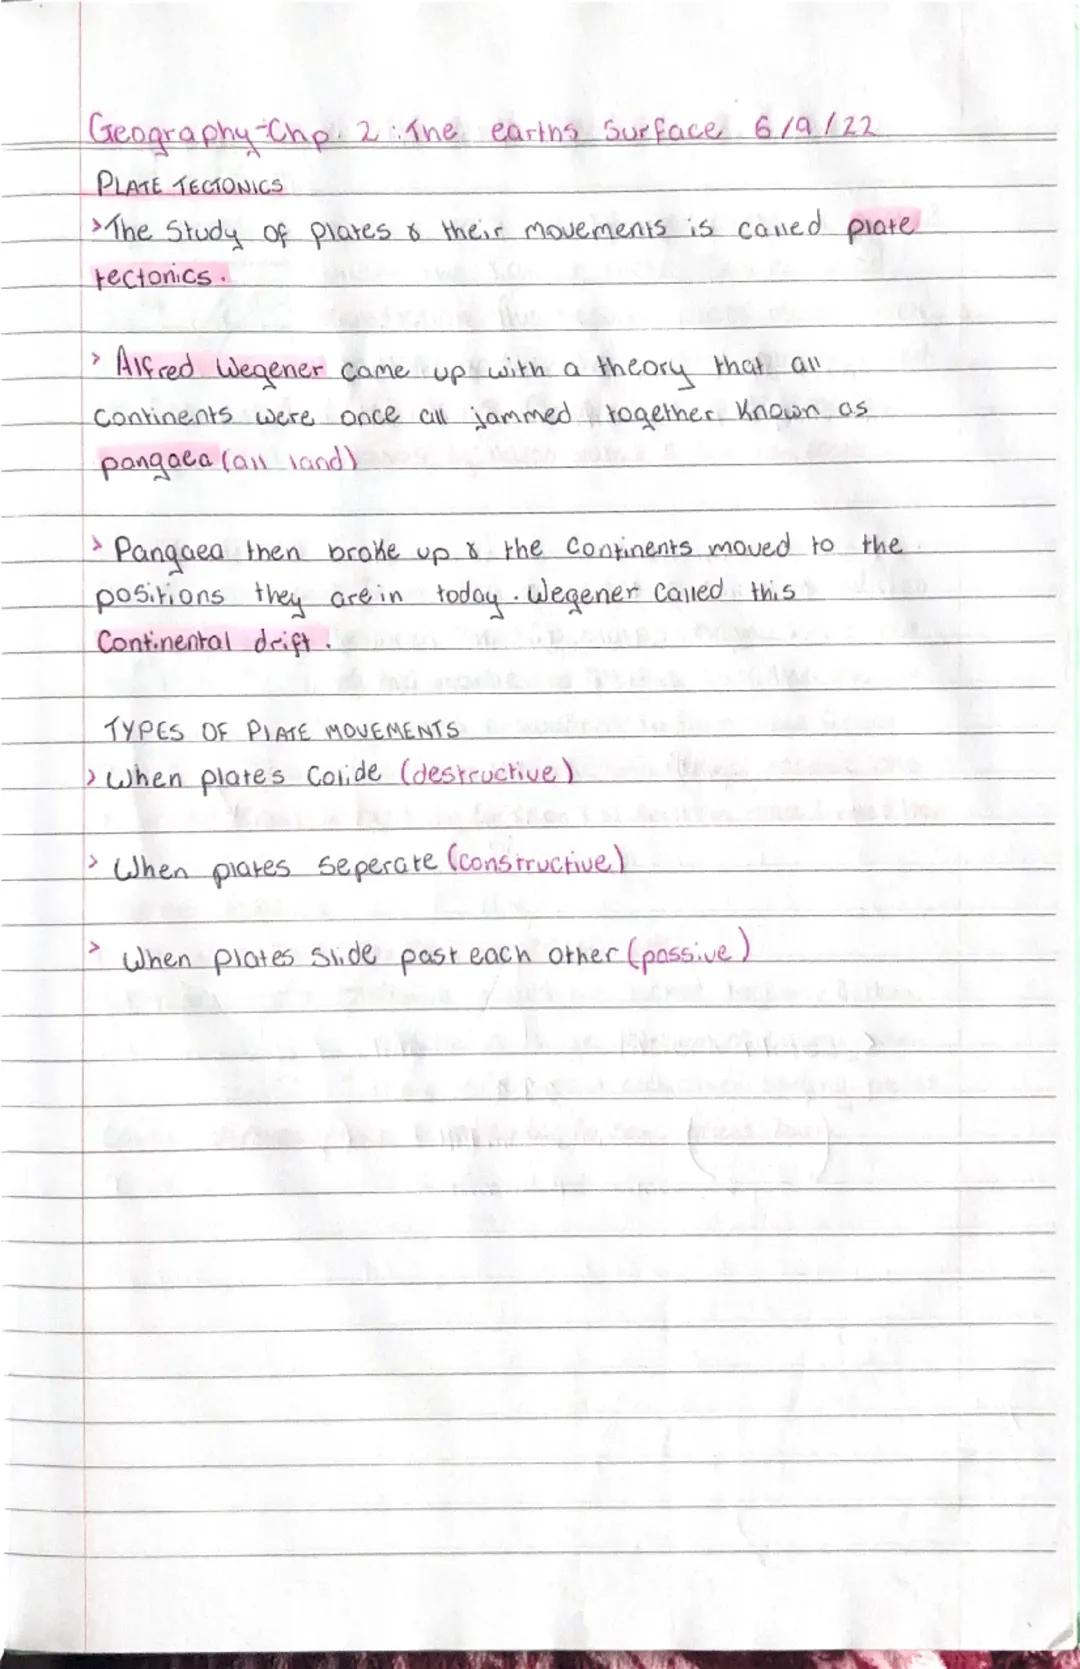 Geography-Chp. 2: The earths Surface 6/9/22
PLATE TECTONICS
>The Study of plates & their movements is called plate
tectonics.
> Alfred Wegener came up with a theory that all
continents were once all jammed together. Known as
pangaea (all land)
> Pangaea then broke up & the Continents moved to the
positions they are in today. Wegener Called this
Continental drift.
TYPES OF PLATE MOVEMENTS
> When plates Colide (destructive)
> When plates seperate (constructive)
> When plates slide past each other (passive)